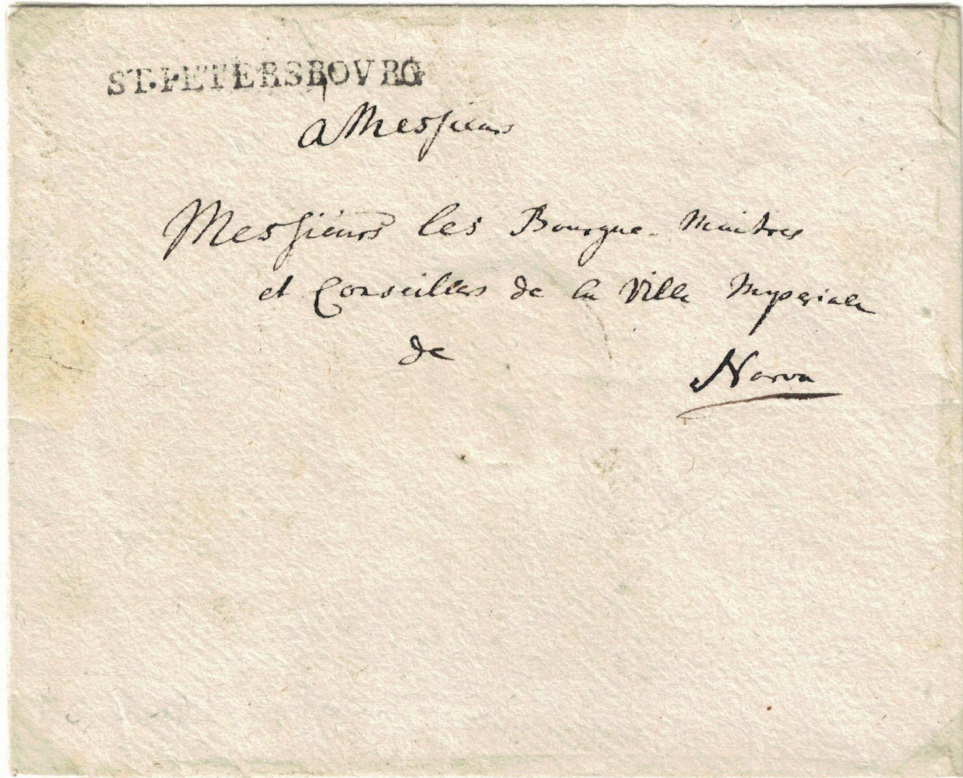 ST.PETERSBOVRG
A Messieurs
Messieurs les Bourgue-Maitres
et Conseillers de la Ville Imperiale
de Narva